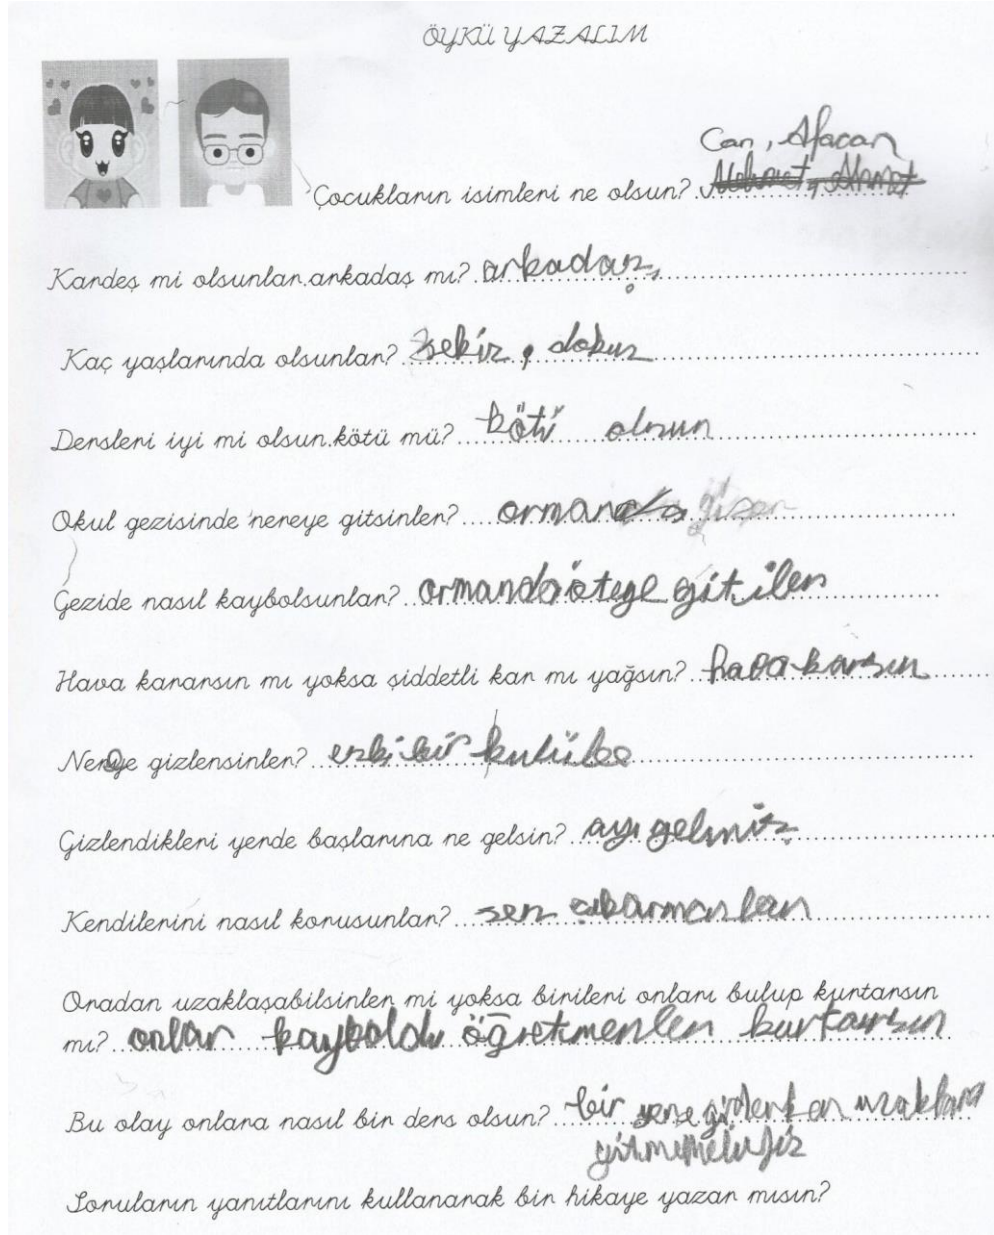 ÖYKÜ YAZALIM
Can, Afacan
Çocukların isimleri ne olsun? Mehmet, Ahmet
Kardeş mi olsunlar.arkadaş mı? arkadaş
Kaç yaşlarında olsunlar? sekiz, dokuz
Dersleri iyi mi olsun.kötü mü? kötü olsun
Okul gezisinde nereye gitsinler? orman
Gezide nasıl kaybolsunlar? ormanda öteye gitiler
Hava kararsın mı yoksa şiddetli kar mı yağsın? hava karsın
Nereye gizlensinler? eski bir kulübe
Gizlendikleri yerde başlarına ne gelsin? ayı gelmiş
Kendilerini nasıl korusunlar? ses çıkarmanlan
Oradan uzaklaşabilsinler mi yoksa birileri onları bulup kurtarsın
mı? onlar kayboldu öğretmenler kurtarsın
Bu olay onlara nasıl bir ders olsun? bir yere giderken uzaklara
gitmemeliyiz
Soruların yanıtlarını kullanarak bir hikaye yazar mısın?